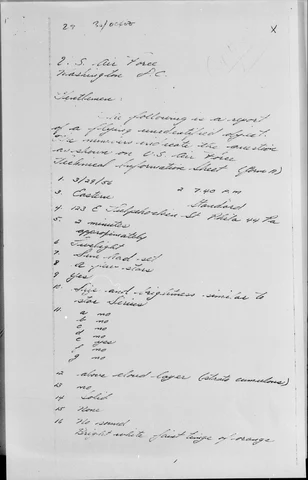 29
X
U. S. Air Force
Washington D.C.
Gentlemen:
The following is a report
of a flying unidentified object.
The numbers indicate the question
as shown on U.S. Air Force
Technical Information Sheet (form A)
1. 3/29/56 2 7:40 P.M
3. Eastern Standard
4. 123 E Tulpehocken St Phila 44 Pa
5. 2 minutes
approximately
6 Twilight
7. Sun had set
8 a few stars
9 yes
10. Size and brightness similar to
star Sirius
11.
a no
b no
c no
d no
e yes
f no
g no
12 above cloud layer (strato cumulous)
13 no
14 Solid
15 None
16 No sound
Bright white faint tinge of orange